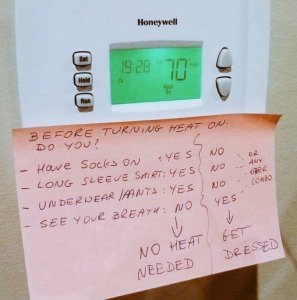 Honeywell
Set
Hold
Run
19:28 70
Heat
On
BEFORE TURNING HEAT ON:
DO YOU?
- HAVE SOCKS ON : YES NO
- LONG SLEEVE SHIRT: YES NO
- UNDERWEAR/PANTS: YES NO
- SEE YOUR BREATH: NO YES
OR
ANY
COMBO
NO HEAT
NEEDED
GET
DRESSED